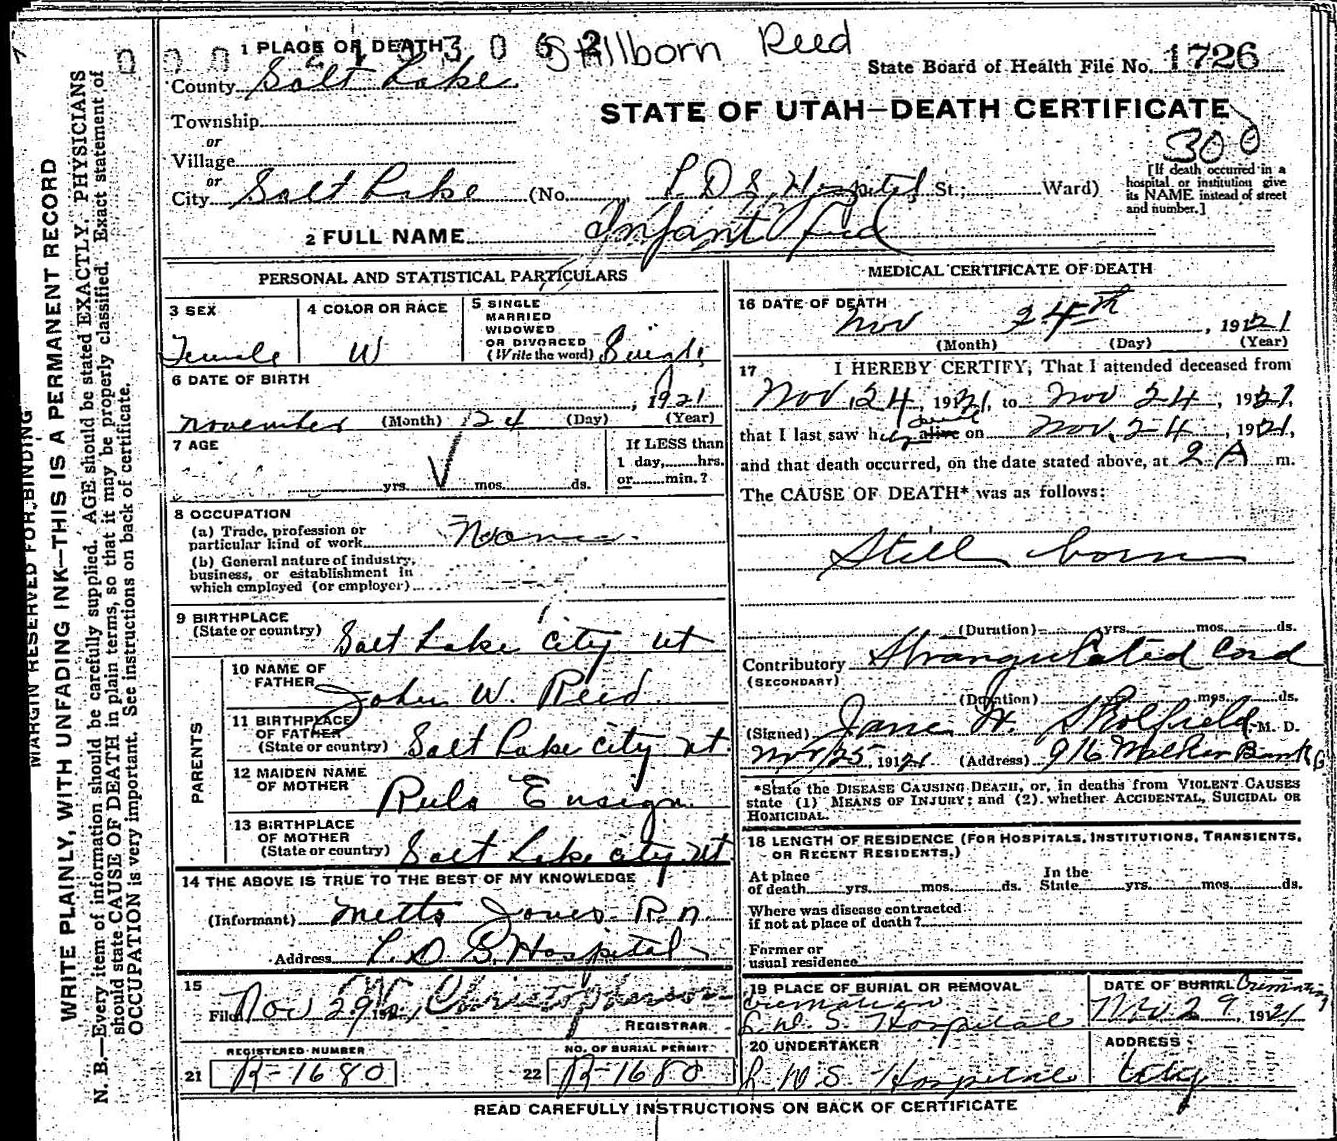 Stillborn Reed
1 PLACE OF DEATH
State Board of Health File No. 1726
County Salt Lake
STATE OF UTAH—DEATH CERTIFICATE
Township
or
Village
or
City Salt Lake (No. L.D.S. Hospital St.; Ward)
300
[If death occurred in a
hospital or institution give
its NAME instead of street
and number.]
2 FULL NAME Infant Reed
PERSONAL AND STATISTICAL PARTICULARS
3 SEX Female
4 COLOR OR RACE W
5 SINGLE
MARRIED
WIDOWED
OR DIVORCED
(Write the word) Single
6 DATE OF BIRTH
November (Month) 24 (Day), 1921 (Year)
7 AGE
yrs. mos. ds.
If LESS than
1 day, hrs.
or min.?
8 OCCUPATION
(a) Trade, profession or
particular kind of work None
(b) General nature of industry,
business, or establishment in
which employed (or employer)
9 BIRTHPLACE
(State or country) Salt Lake City Ut
PARENTS
10 NAME OF
FATHER John W. Reed
11 BIRTHPLACE
OF FATHER
(State or country) Salt Lake City Ut
12 MAIDEN NAME
OF MOTHER Rula Ensign
13 BIRTHPLACE
OF MOTHER
(State or country) Salt Lake City Ut
14 THE ABOVE IS TRUE TO THE BEST OF MY KNOWLEDGE
(Informant) Metta Jones R.N.
Address L.D.S. Hospital
15
Filed Nov 29, Christopherson
REGISTRAR
REGISTERED NUMBER
21 B-1680
NO. OF BURIAL PERMIT
22 B-1680
MEDICAL CERTIFICATE OF DEATH
16 DATE OF DEATH
Nov 24th, 1921
(Month) (Day) (Year)
17 I HEREBY CERTIFY, That I attended deceased from
Nov. 24, 1921, to Nov 24, 1921,
that I last saw her alive on Nov. 24, 1921,
and that death occurred, on the date stated above, at 2 A m.
The CAUSE OF DEATH* was as follows:
Still born
(Duration) yrs. mos. ds.
Contributory Strangulated Cord
(SECONDARY)
(Duration) mos. ds.
(Signed) Jane W. Skolfield M. D.
Nov 25, 1921 (Address) 916 Walker Bank
*State the DISEASE CAUSING DEATH, or, in deaths from VIOLENT CAUSES
state (1) MEANS OF INJURY; and (2) whether ACCIDENTAL, SUICIDAL OR
HOMICIDAL.
18 LENGTH OF RESIDENCE (FOR HOSPITALS, INSTITUTIONS, TRANSIENTS,
OR RECENT RESIDENTS.)
At place
of death yrs. mos. ds.
In the
State yrs. mos. ds.
Where was disease contracted
if not at place of death?
Former or
usual residence
19 PLACE OF BURIAL OR REMOVAL
Cremation
L.D.S. Hospital
DATE OF BURIAL
Nov 29, 1921
20 UNDERTAKER
L.D.S. Hospital
ADDRESS
City
READ CAREFULLY INSTRUCTIONS ON BACK OF CERTIFICATE
MARGIN RESERVED FOR BINDING
WRITE PLAINLY, WITH UNFADING INK—THIS IS A PERMANENT RECORD
N. B.—Every item of information should be carefully supplied. AGE should be stated EXACTLY. PHYSICIANS
should state CAUSE OF DEATH in plain terms, so that it may be properly classified. Exact statement of
OCCUPATION is very important. See instructions on back of certificate.